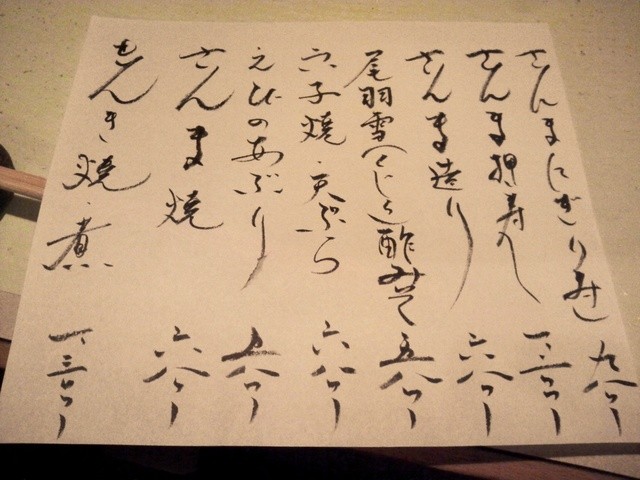 さんまにぎり 九八〇ー
さんま押寿し 一、三〇〇ー
さんま造り 六八〇ー
尾羽雪(くじら)酢みそ 五八〇ー
穴子焼・天ぷら 六八〇ー
えびのあぶり 五八〇ー
さんま焼 六八〇ー
きんき焼・煮 一、三〇〇ー